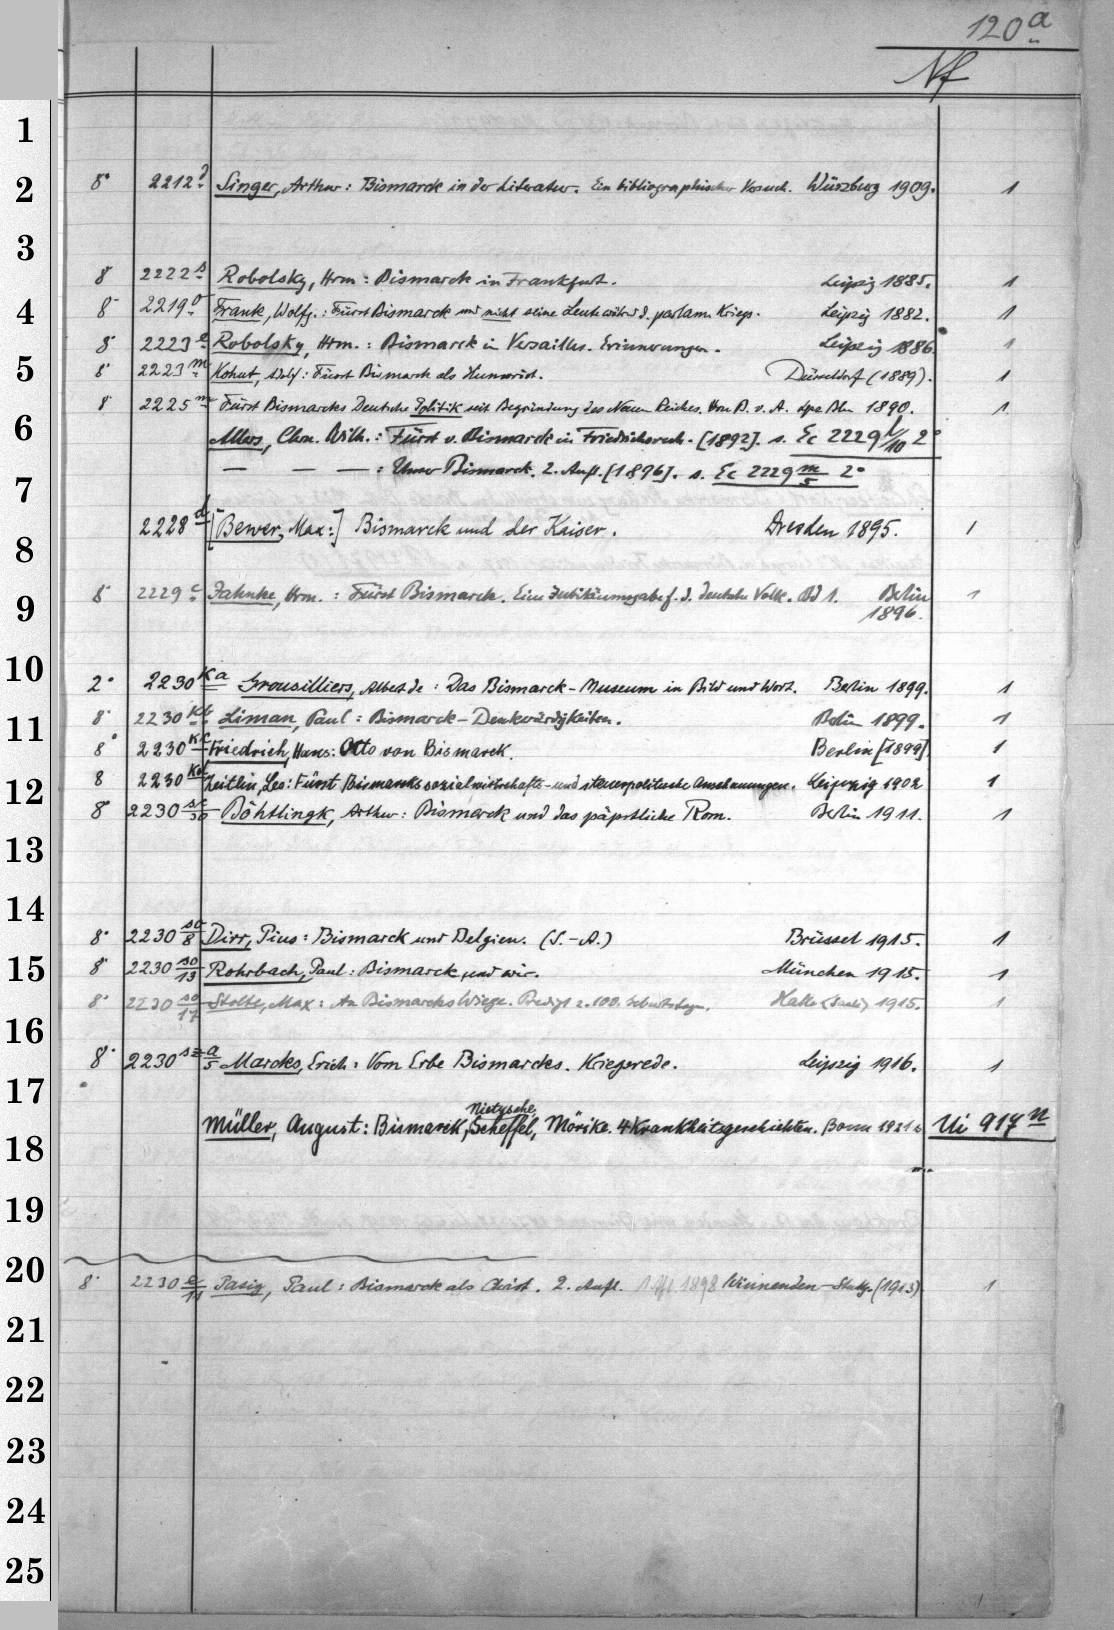 120a
Nf
1
2
3
4
5
6
7
8
9
10
11
12
13
14
15
16
17
18
19
20
21
22
23
24
25
8° 2212d Singer, Arthur: Bismarck in der Literatur. Ein bibliographischer Versuch. Würzburg 1909. 1
8° 2222s Robolsky, Hrm: Bismarck in Frankfurt. Leipzig 1885. 1
8° 2219o Frank, Wolfg.: Fürst Bismarck und nicht seine Leute während d. parlam. Kriegs. Leipzig 1882. 1
8° 2223e Robolsky, Hrm.: Bismarck in Versailles. Erinnerungen. Leipzig 1886. 1
8° 2223m Kohut, Adolf: Fürst Bismarck als Humorist. Düsseldorf (1889). 1
8° 2225m Fürst Bismarcks Deutsche Politik seit Begründung des Neuen Reiches. Von B. v. A. Bln 1890. 1
Allers, Chn. Wilh.: Fürst v. Bismarck in Friedrichsruh. [1892]. s. Ec 2229 l/10 2°
— — —: Unser Bismarck. 2. Aufl. [1896]. s. Ec 2229 m/5 2°
2228d [Bewer, Max:] Bismarck und der Kaiser. Dresden 1895. 1
8° 2229c Jahnke, Hrm.: Fürst Bismarck. Eine Jubiläumsgabe f. d. deutsche Volk. Bd 1. Berlin 1
1896.
2° 2230Ka Grousilliers, Albert de: Das Bismarck-Museum in Bild und Wort. Berlin 1899. 1
8° 2230Kb Liman, Paul: Bismarck-Denkwürdigkeiten. Berlin 1899. 1
8° 2230Kc Friedrich, Hans: Otto von Bismarck. Berlin [1899]. 1
8 2230Kd Zeitlin, Leo: Fürst Bismarcks sozialwirtschafts- und steuerpolitische Anschauungen. Leipzig 1902 1
8° 2230 sc/30 Böhtlingk, Arthur: Bismarck und das päpstliche Rom. Berlin 1911. 1
8° 2230 so/8 Dirr, Pius: Bismarck und Belgien. (S.-A.) Brüssel 1915. 1
8° 2230 so/13 Rohrbach, Paul: Bismarck und wir. München 1915. 1
8° 2230 so/17 Stolte, Max: An Bismarcks Wiege. Predigt z. 100. Geburtstage. Halle (Saale) 1915. 1
8° 2230 sz a/5 Marcks, Erich: Vom Erbe Bismarcks. Kriegsrede. Leipzig 1916. 1
Nietzsche,
Müller, August: Bismarck, Scheffel, Mörike. 4 Krankheitsgeschichten. Bonn 1921. Ui 917n
8° 2230 e/11 Pasig, Paul: Bismarck als Christ. 2. Aufl. 1898 Winnenden-Stuttg. (1913). 1